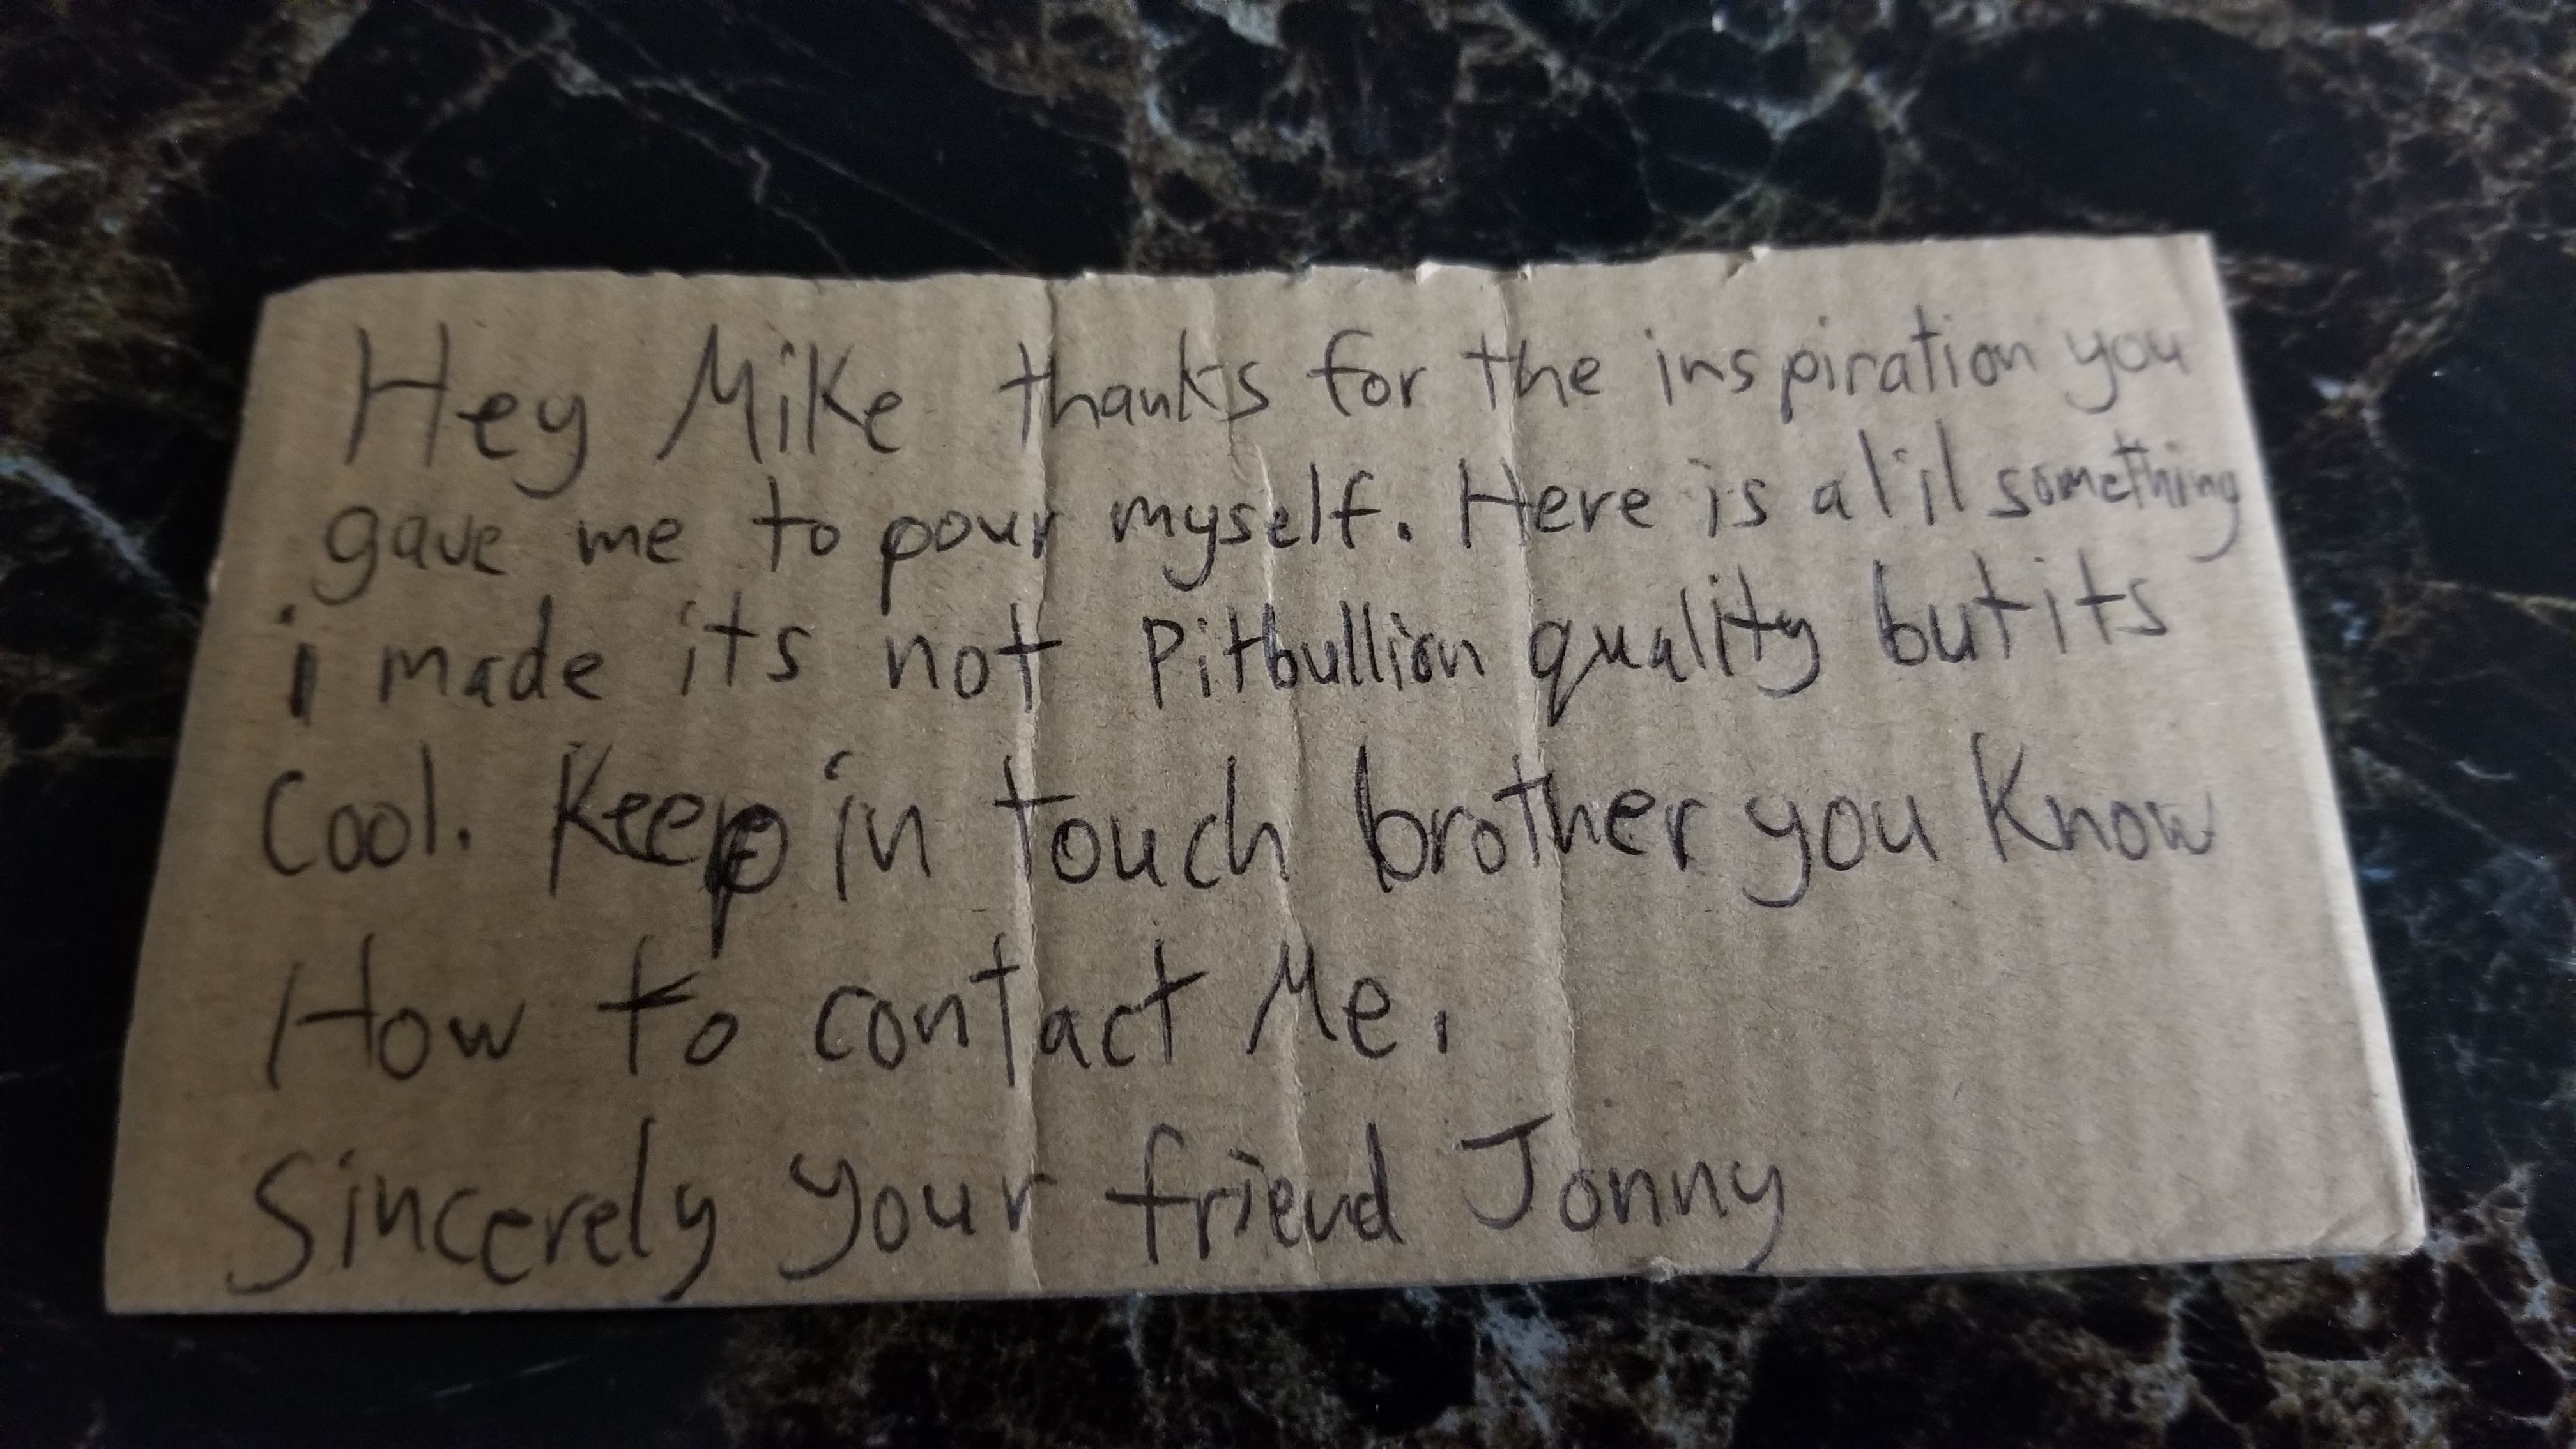 Hey Mike thanks for the inspiration you
gave me to pour myself. Here is a l'il something
i made its not Pitbullion quality but its
Cool. Keep in touch brother you Know
How to contact Me.
Sincerely your friend Jonny